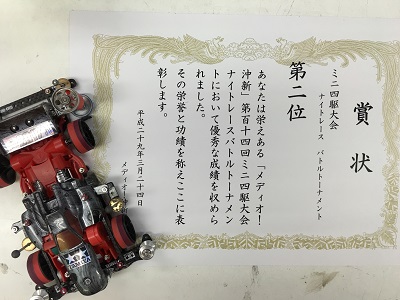 賞状
ミニ四駆大会
ナイトレース バトルトーナメント
第二位
あなたは栄えある「メディオ!
沖新」第百十四回ミニ四駆大会
ナイトレースバトルトーナメン
トにおいて優秀な成績を収めら
れました。
その栄誉と功績を称えここに表
彰します。
平成二十九年三月二十四日
メディオ!
TAMIYA